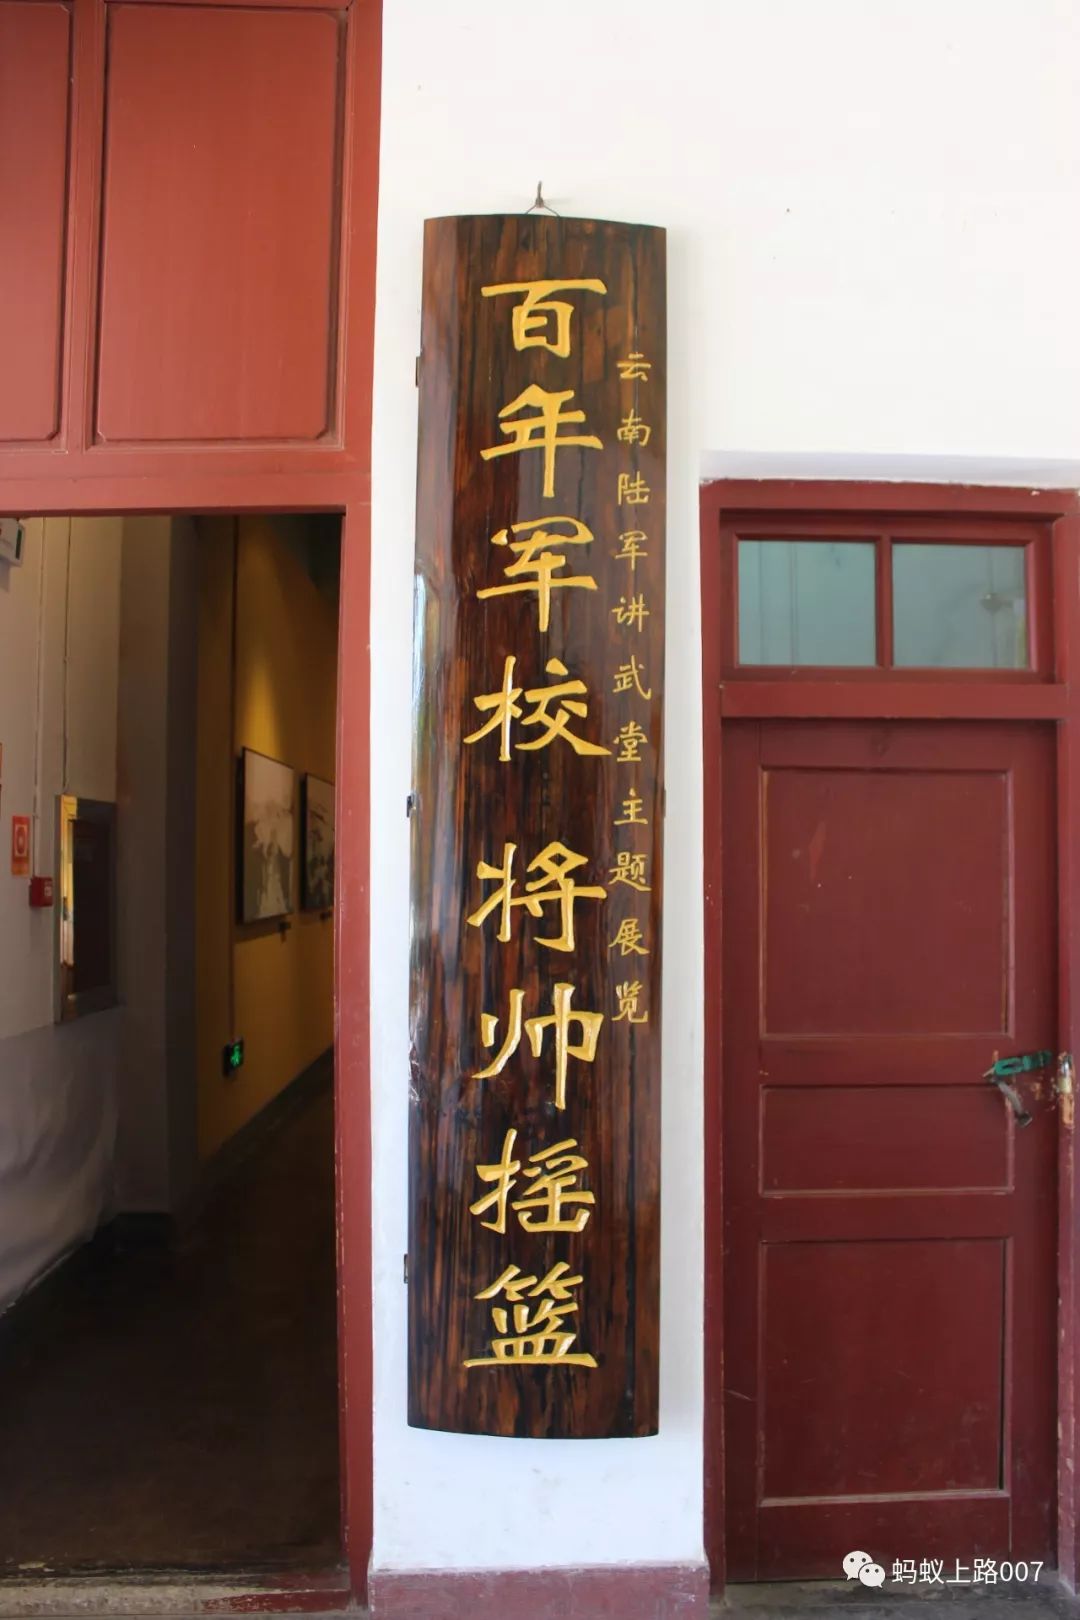 云南陆军讲武堂主题展览
百年军校 将帅摇篮
蚂蚁上路007